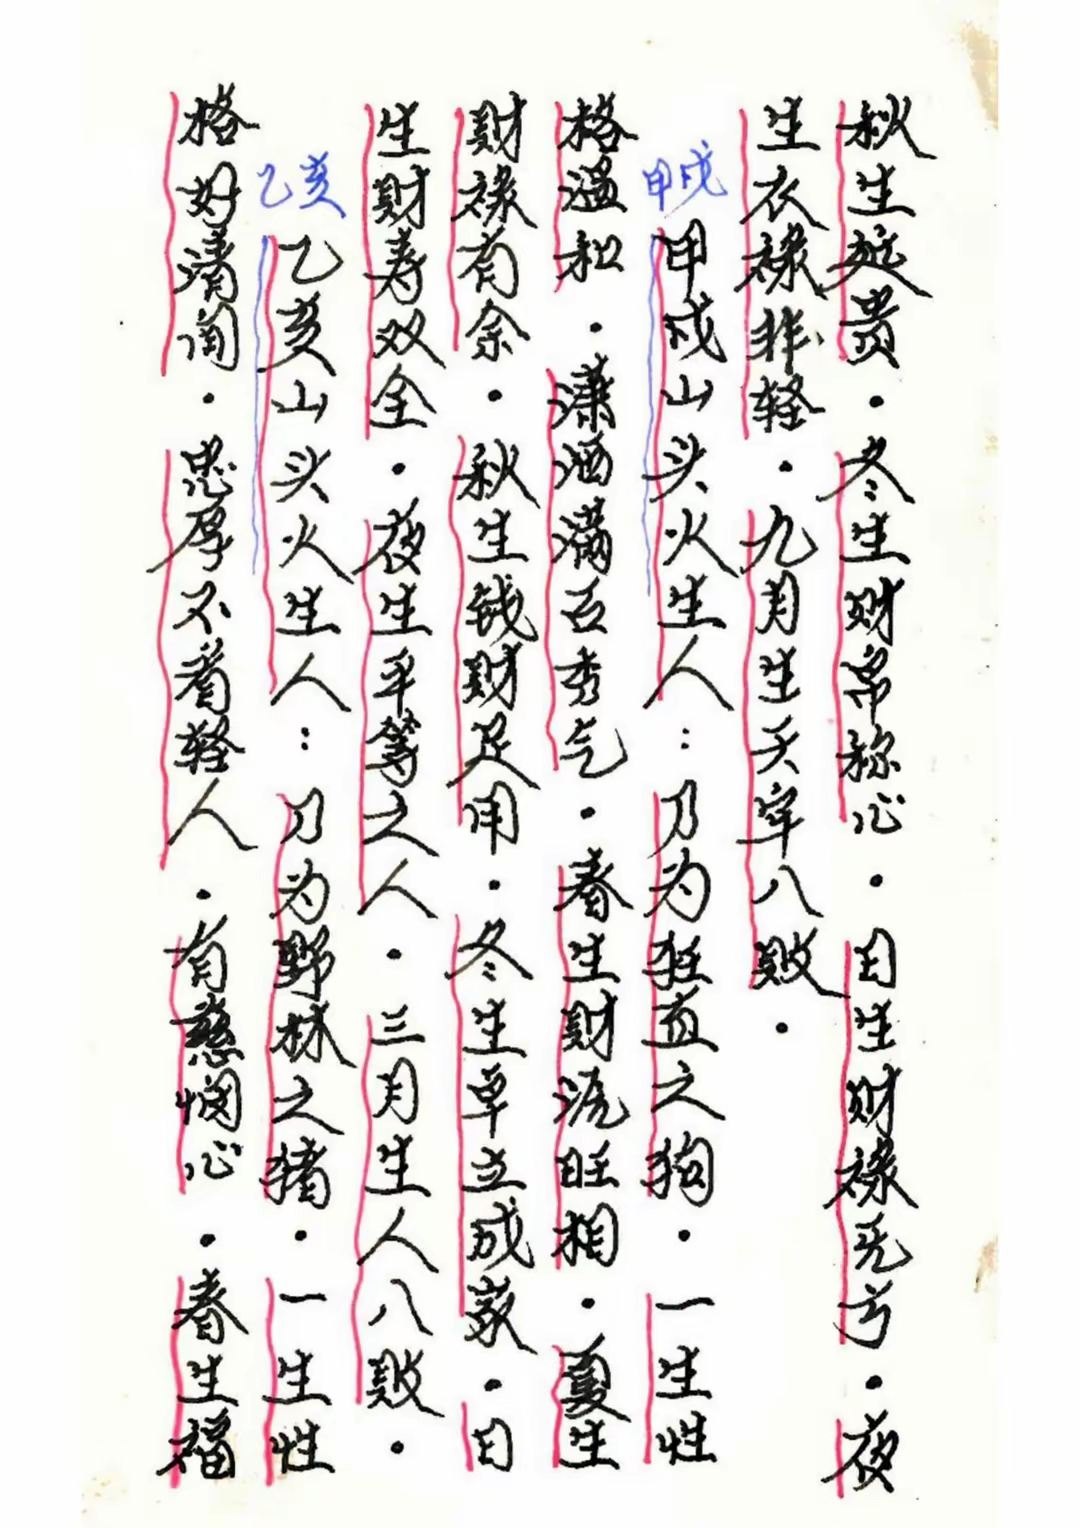 秋生挺贵．冬生财帛称心．日生财禄无亏．夜
生衣禄非轻．九月生天牢八败．
甲戌
甲戌山头火生人：乃为狂直之狗．一生性
格温和．潇洒满五秀气．春生财源旺相．夏生
财禄有余．秋生钱财足用．冬生草立成家．日
生财寿双全．夜生平等之人．三月生人八败．
乙亥
乙亥山头火生人：乃为野林之猪．一生性
格好清闲．忠厚不看轻人．有慈悯心．春生福